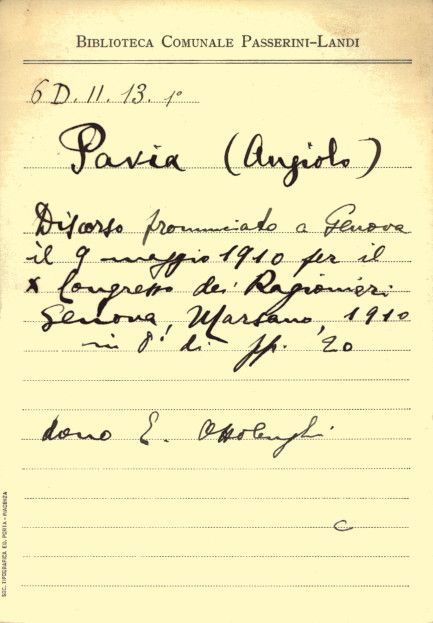 BIBLIOTECA COMUNALE PASSERINI-LANDI
6 D. II. 13. 1º
Pavia (Angiolo)
Discorso pronunciato a Genova
il 9 maggio 1910 per il
X Congresso dei Ragionieri
Genova, Marsano, 1910
in 8º di pp. 20
dono E. Ottolenghi
C
SOC. TIPOGRAFICA ED. PORTA - PIACENZA